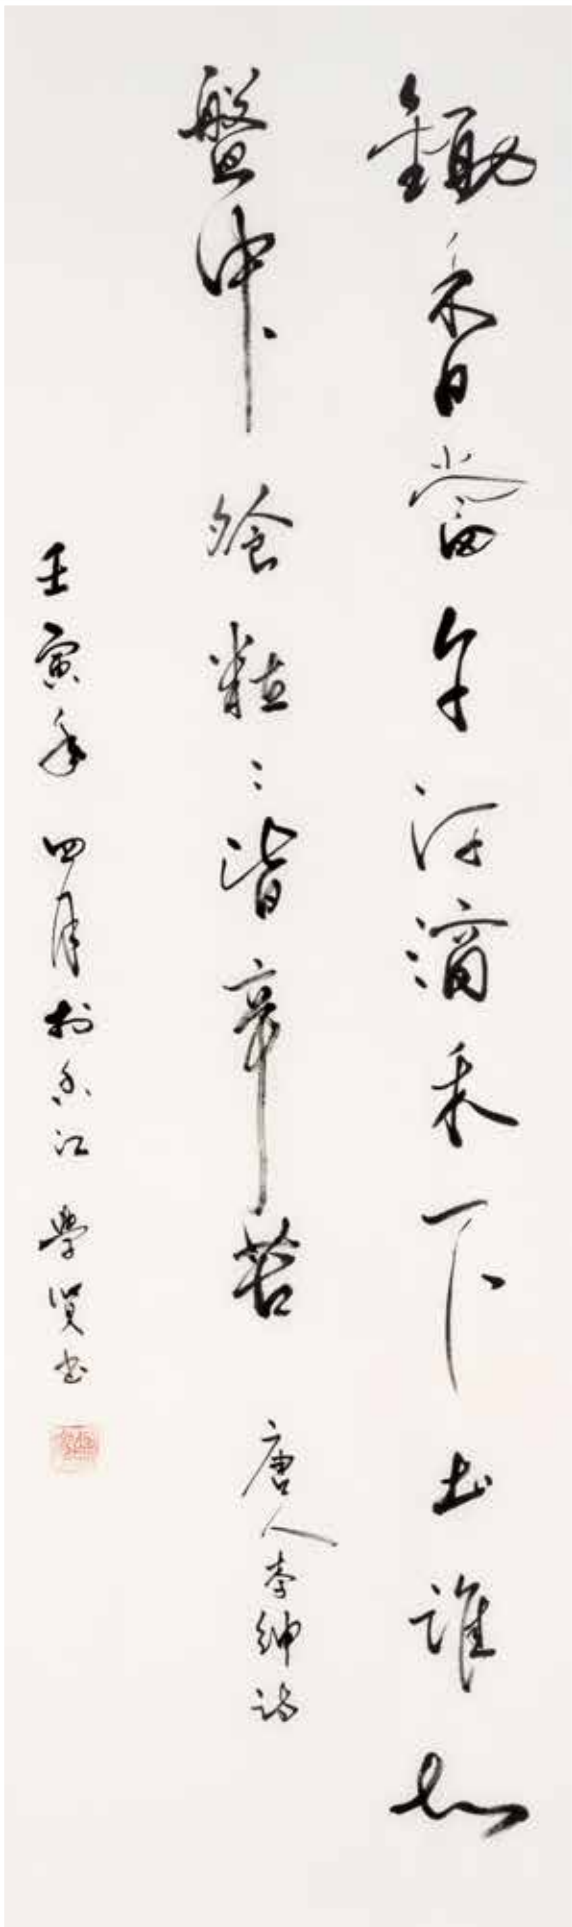 鋤禾日當午汗滴禾下土誰知
盤中飧粒々皆辛苦 唐人李紳詩
壬寅年四月於香江學賢書